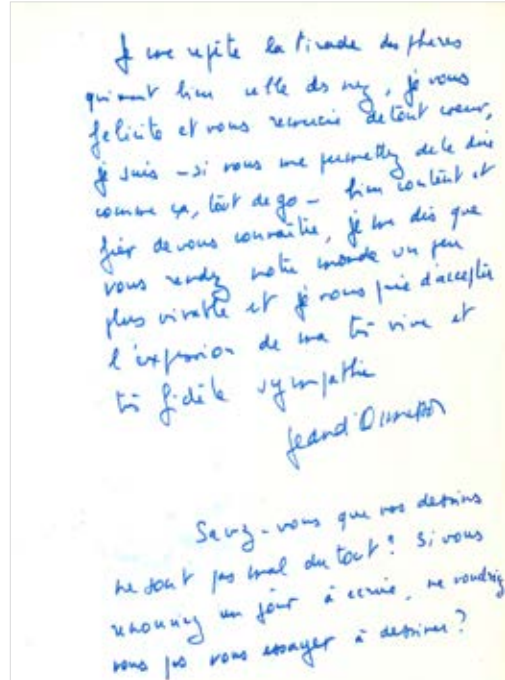 Je me répète la tirade des phares
qui vaut bien celle des nez, je vous
félicite et vous remercie de tout cœur,
je suis – si vous me permettez de le dire
comme ça, tout de go – bien content et
fier de vous connaître, je me dis que
vous rendez notre monde un peu
plus vivable et je vous prie d'accepter
l'expression de ma très vive et
très fidèle sympathie
Jean d'Ormesson
Savez-vous que vos dessins
ne sont pas mal du tout ? Si vous
renonciez un jour à écrire, ne voudriez
vous pas vous essayer à dessiner ?